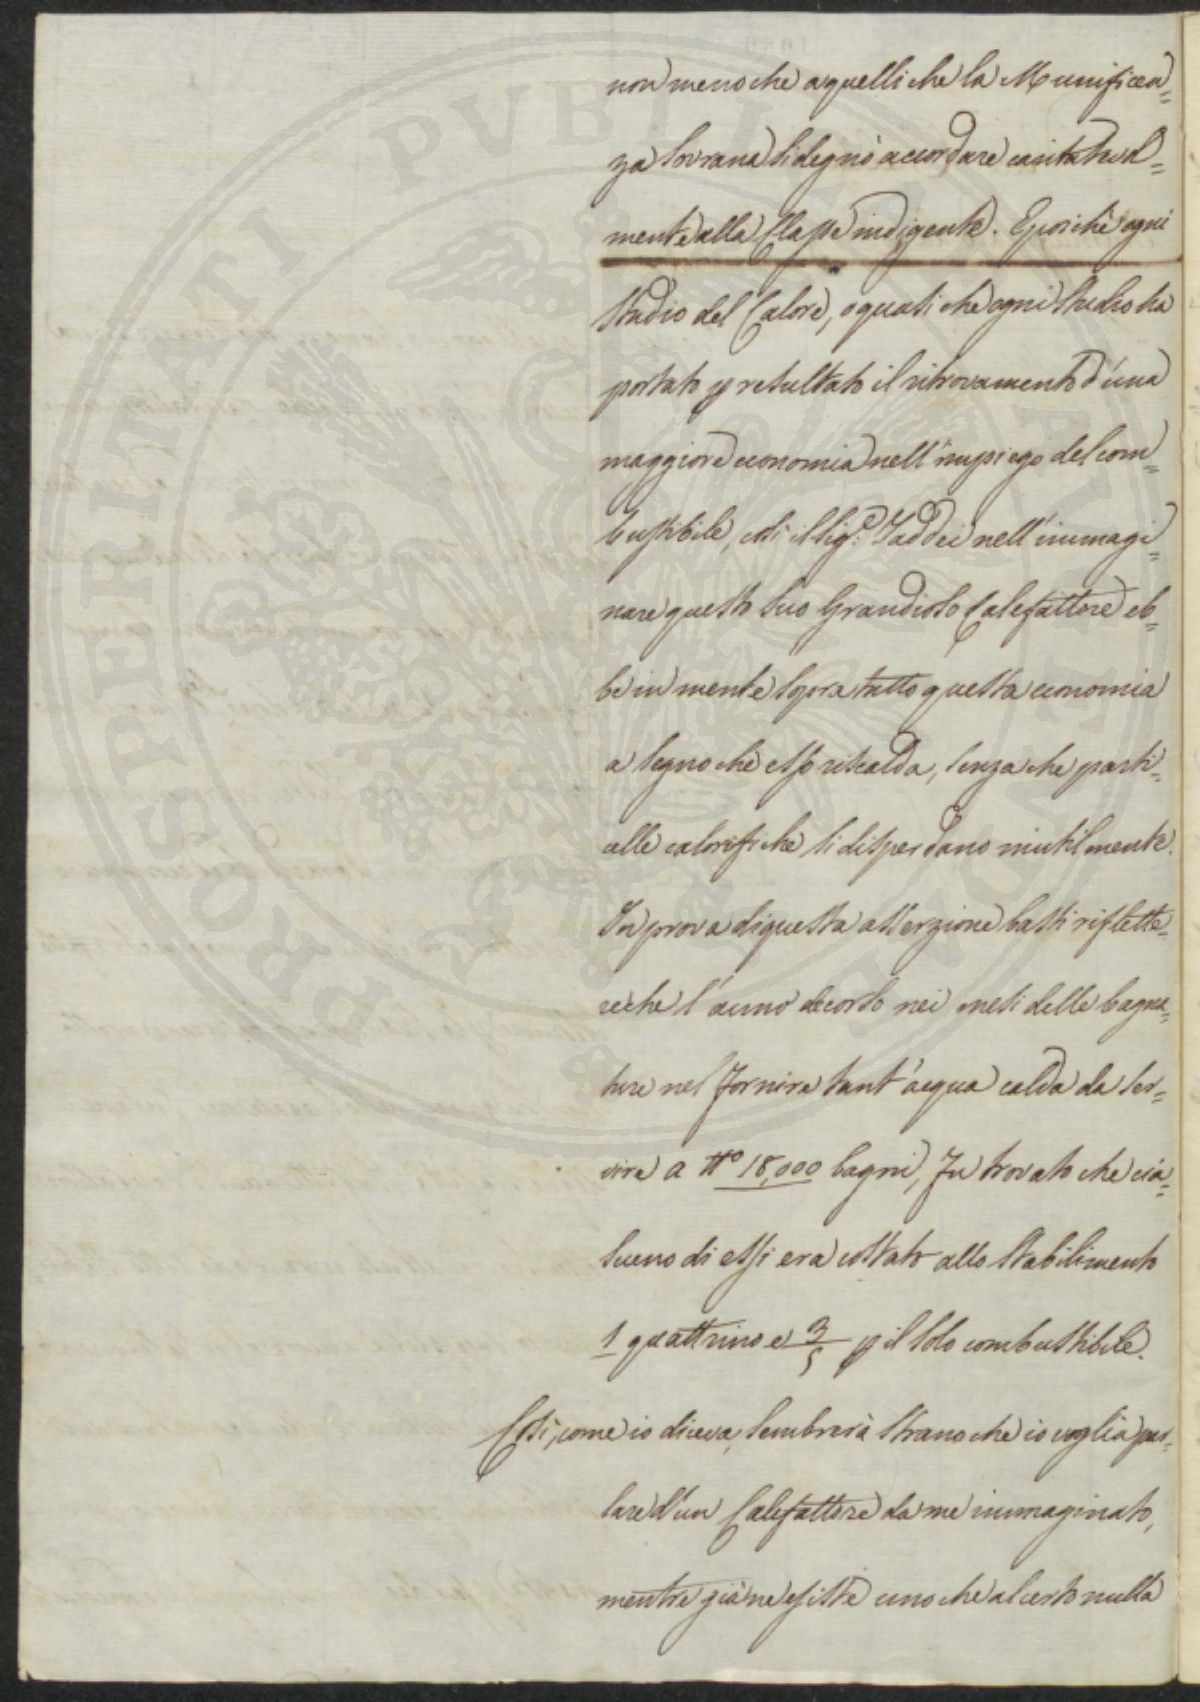 non meno che a quelli che la Munificen=
za Sovrana si degnò accordare caritatevol=
mente alla Classe indigente. E poichè ogni
Studio del Calore, o quasi che ogni Studio ha
portato p resultato il ritrovamento d'una
maggiore economia nell'impiego del com=
bustibile, così il Sig.e Taddei nell'immagi=
nare questo suo Grandioso Calefattore eb=
be in mente sopra tutto questa economia
a segno che esso riscalda, senza che parti=
celle calorifiche si disperdano inutilmente.
In prova di questa asserzione basti riflette=
re che l'anno decorso nei mesi delle bagna=
ture nel fornire tant'acqua calda da ser=
vire a No 18,000 bagni, fu trovato che cia=
scuno di essi era costato allo Stabilimento
1 quattrino e 3/5 p il solo combustibile.
Così, come io diceva, sembrerà strano che io voglia par=
lare d'un Calefattore da me immaginato,
mentre già ne esiste uno che al certo nulla
PROSPERITATI PVBLICAE